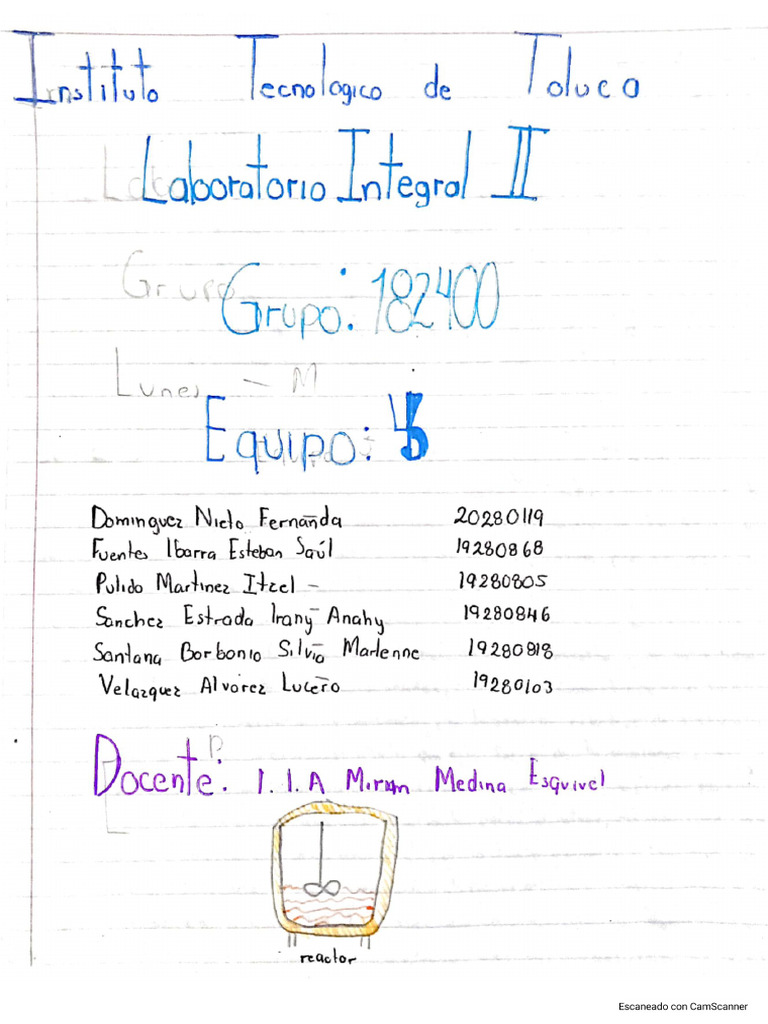 Instituto Tecnologico de Toluca
Laboratorio Integral II
Grupo: 182400
Lunes - M
Equipo: 5
Dominguez Nieto Fernanda 20280119
Fuentes Ibarra Esteban Saúl 19280868
Pulido Martinez Itzel - 19280805
Sanchez Estrada Irany Anahy 19280846
Santana Borbonio Silvia Marlenne 19280818
Velazquez Alvarez Lucero 19280103
Docente: I.I.A Miriam Medina Esquivel
reactor
Escaneado con CamScanner